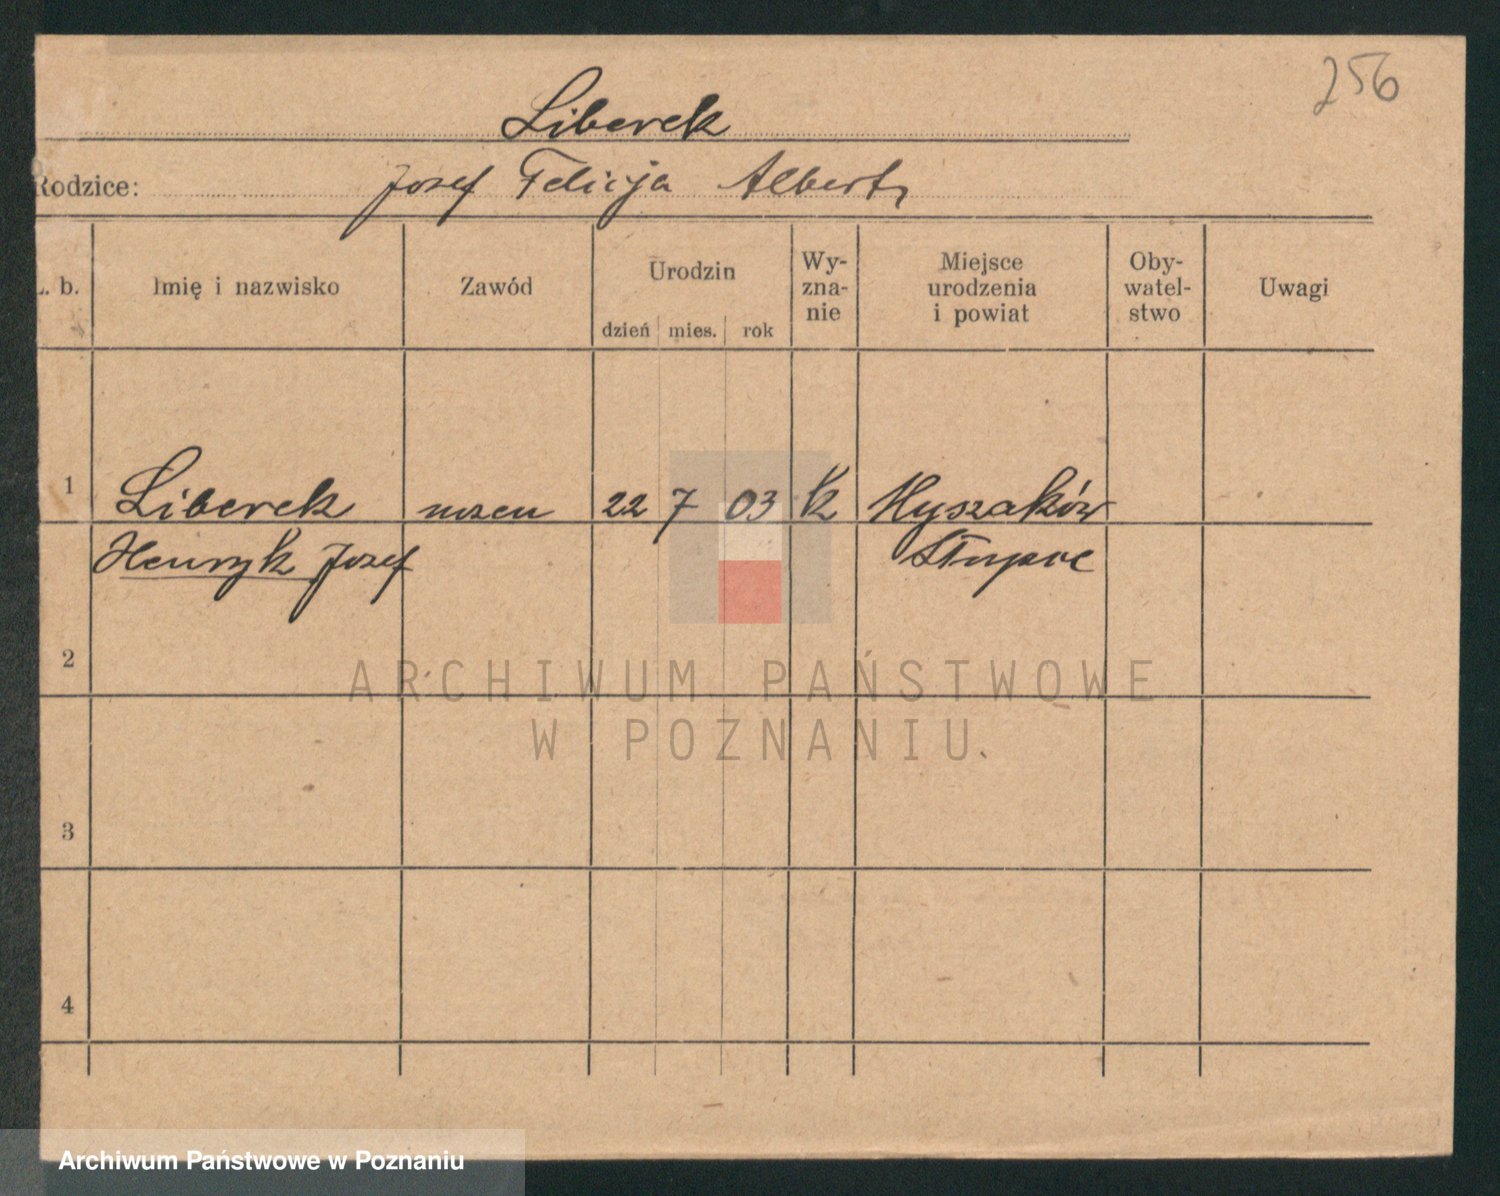 256
Liberek
Rodzice: Josef Felicja Albert
L. b. Imię i nazwisko Zawód Urodzin dzień mies. rok Wy-
zna-
nie Miejsce
urodzenia
i powiat Oby-
watel-
stwo Uwagi
1 Liberek uczeń 22 7 03 k Myszaków
Henryk Josef
2
3
4
ARCHIWUM PAŃSTWOWE
W POZNANIU
Archiwum Państwowe w Poznaniu